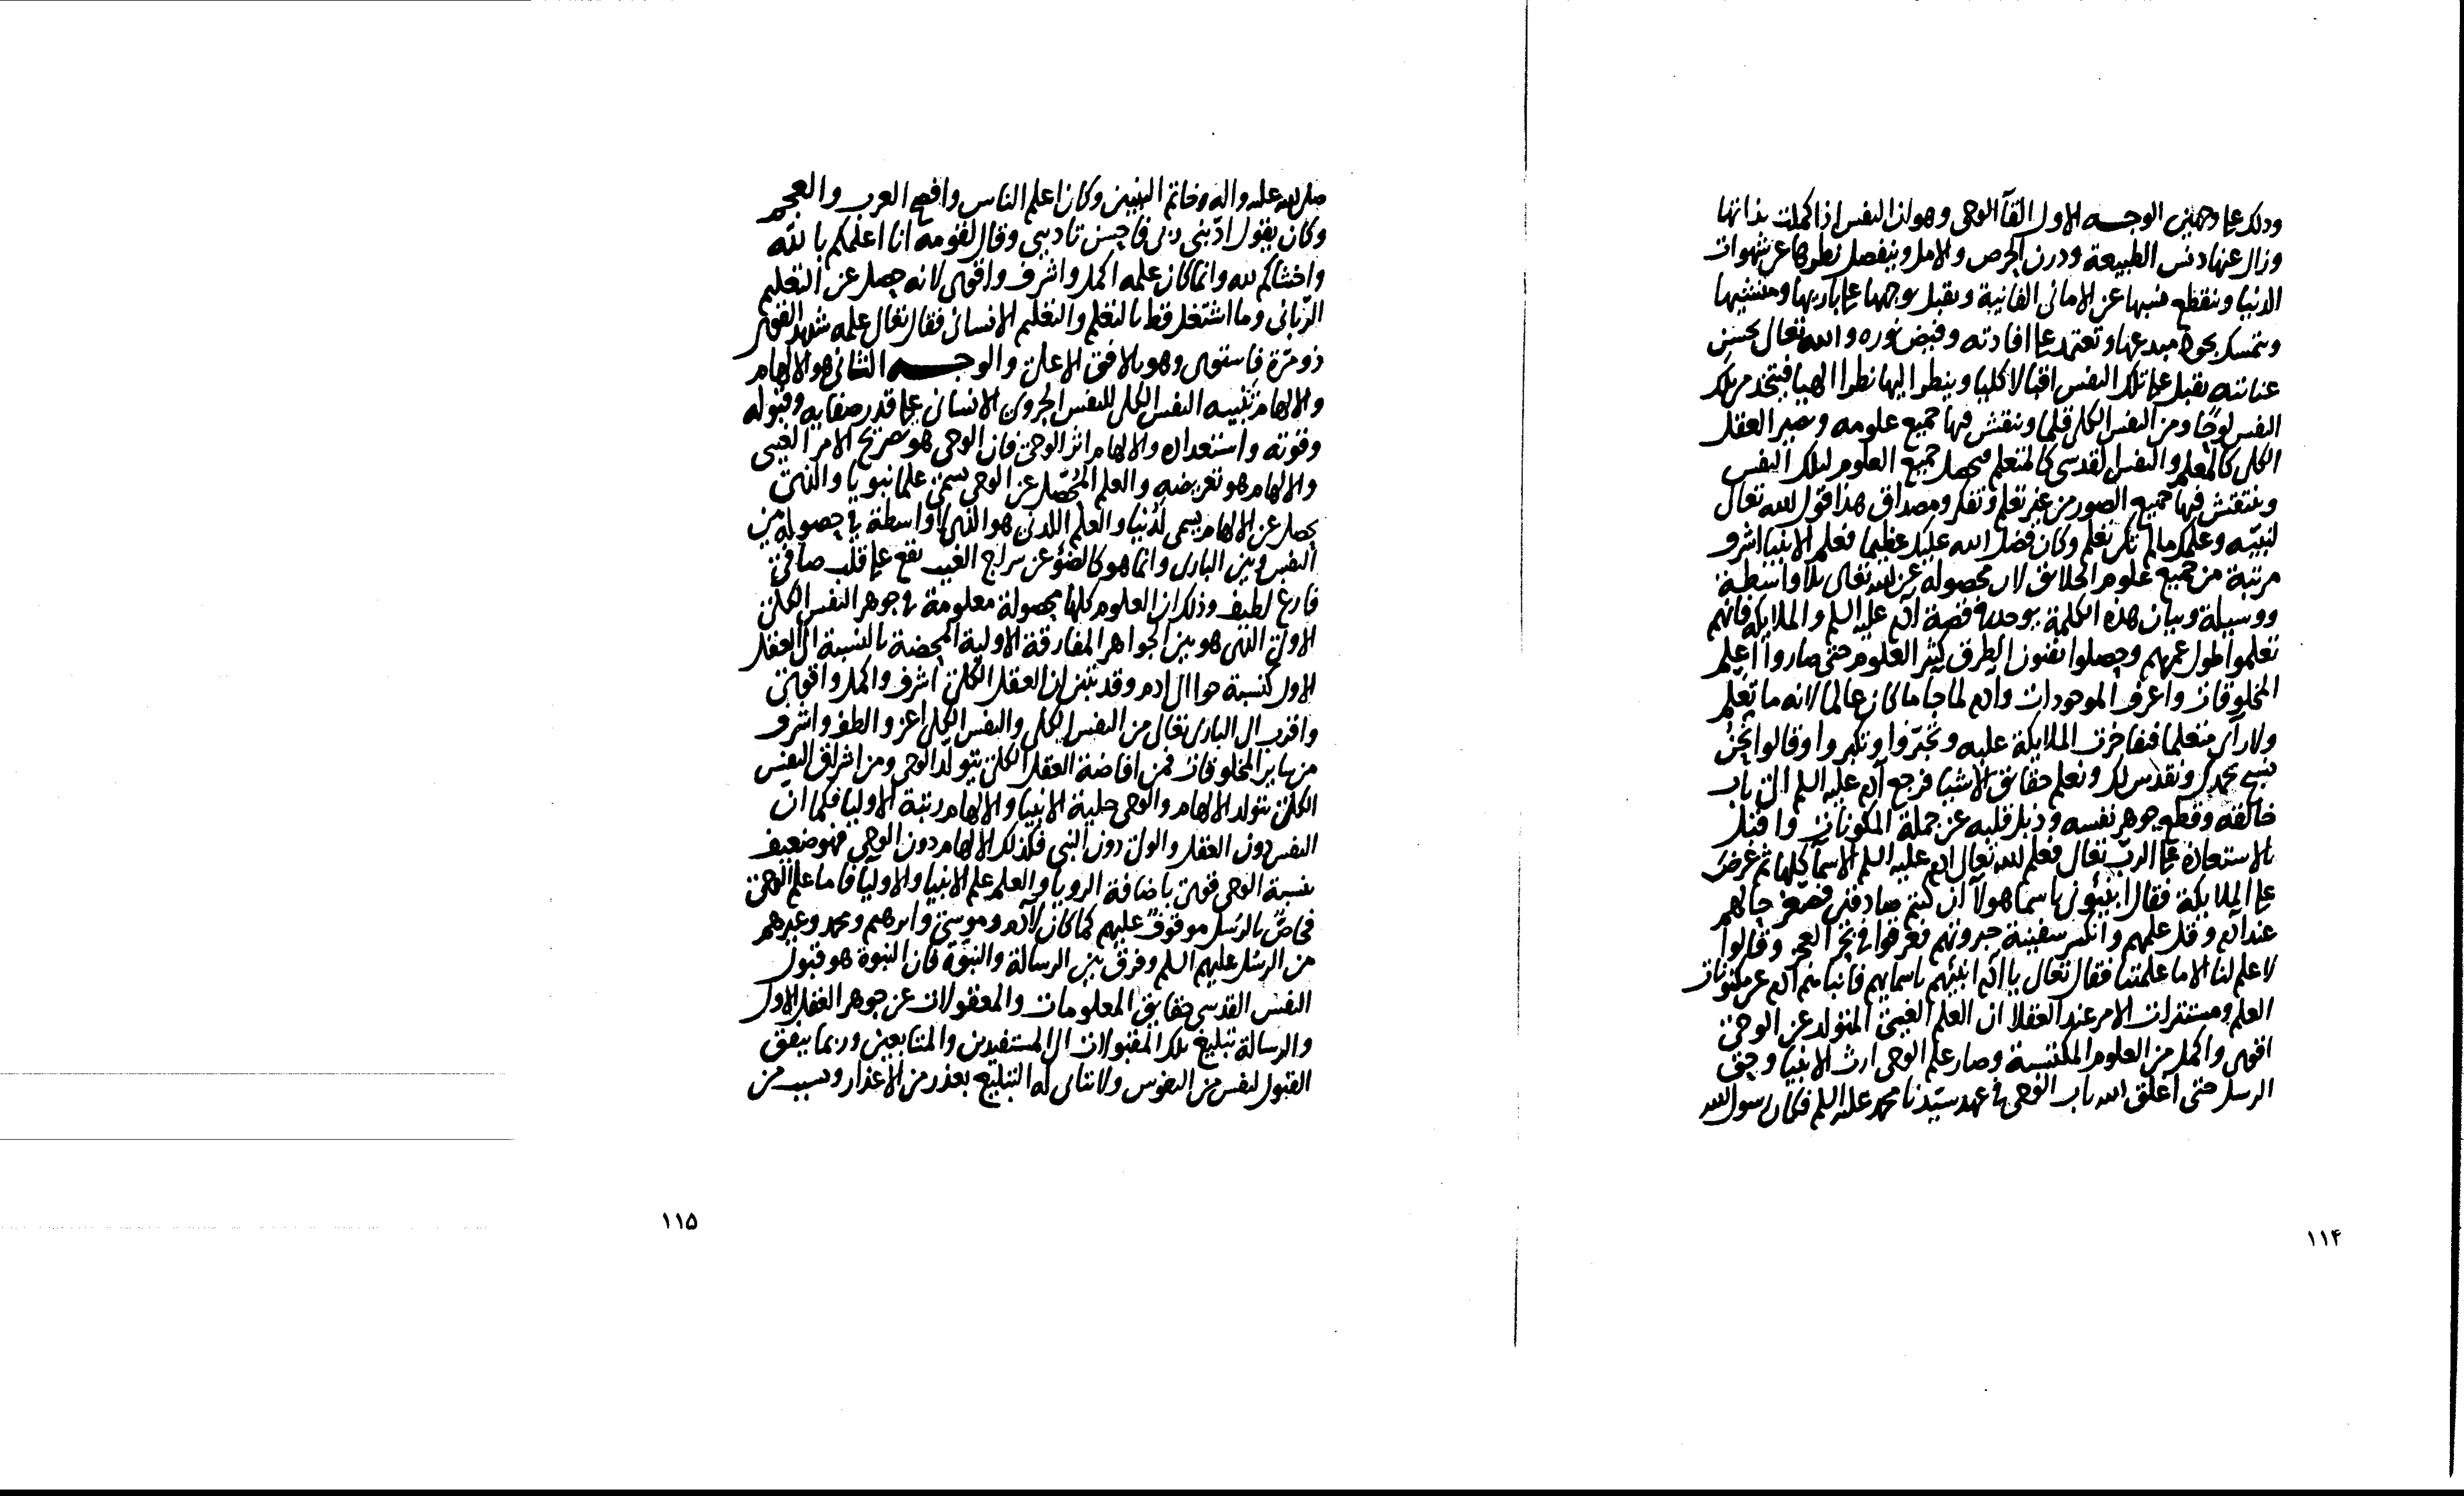 وذلك على وجهين الوجه الاول القآ الوحى وهو ان النفس اذا كملت بذاتها
وزال عنها دنس الطبيعة ودرن الحرص والامل وينفصل نظرها عن شهوات
الدنيا وينقطع نسبها عن الامانى الفانية وتقبل بوجهها على باريها ومنشيها
وتتمسك بجود مبدعها وتعتمد على افادته وفيض نوره والله تعالى بحسن
عنايته يقبل على تلك النفس اقبالا كليا وينظر اليها نظرا الهيا فيتخذ من تلك
النفس لوحا ومن النفس الكلى قلما وينقش فيها جميع علومه ويصير العقل
الكلى كالمعلم والنفس القدسى كالمتعلم فيحصل جميع العلوم لتلك النفس
وينتقش فيها جميع الصور من غير تعلم وتفكر ومصداق هذا قول الله تعالى
لنبيّه وعلمك مالم تكن تعلم وكان فضل الله عليك عظيما فعلم الانبيا اشرف
مرتبة من جميع علوم الخلايق لان محصوله عن الله تعالى بلا واسطة
ووسيلة وبيان هذه الكلمة يوجد فى قصة آدم عليه السلم والملايكة فانهم
تعلموا طول عمرهم وحصلوا بفنون الطرق كثير العلوم حتى صاروا اعلم
المخلوقات واعرف الموجودات وآدم لما جا ما كان عالما لانه ما تعلم
ولا رآى متعلما فتفاخرت الملايكة عليه وتجبّروا وتكبروا وقالوا نحن
نسبح بحمدك ونقدس لك ونعلم حقايق الاشيا فرجع آدم عليه السلم الى باب
خالقه وقطع جوهر نفسه وذبل قلبه عن جملة المكونات واقبل
بالاستعانة على الربّ تعالى فعلم الله تعالى ادم عليه السلم الاسمآ كلها ثم عرضهم
على الملايكة فقال انبئونى باسما هولآ ان كنتم صادقين فصغر حالهم
عند آدم وقل علمهم وانكسر سفينة جبروتهم فغرقوا فى بحر العجز وقالوا
لا علم لنا الا ما علمتنا فقال تعالى يا آدم انبئهم باسمايهم فانباهم آدم عن مكنونات
العلم ومستترات الامر عند العقلا ان العلم الغيبى المتولد عن الوحى
اقوى واكمل من العلوم المكتسبة وصار علم الوحى ارث الانبيا وحق
الرسل حتى اغلق الله باب الوحى فى عهد سيّدنا محمد عليه السلم فكان رسول الله
١١۴
صلى الله عليه واله وخاتم النبيين وكان اعلم الناس وافصح العرب والعجم
وكان يقول ادّبنى ربى فاحسن تاديبى وقال لقومه انا اعلمكم بالله
واخشاكم لله وانما كان علمه اكمل واشرف واقوى لانه حصل عن التعليم
الربّانى وما اشتغل قط بالتعلم والتعليم الانسانى فقال تعالى علمه شديد القوى
ذو مرّة فاستوى وهو بالافق الاعلى والوجه الثانى هو الالهام
والالهام تنبيه النفس الكلى للنفس الجزوى الانسانى على قدر صفايه وقبوله
وقوته واستعداده والالهام اثر الوحى فان الوحى هو صريح الامر الغيبى
والالهام هو تعريضه والعلم المُحصّل عن الوحى يسمى علما نبويا والذى
يحصل عن الالهام يسمى لدُنيا والعلم اللدنى هو الذى لا واسطة فى حصوله بين
النفس وبين البارى وانما هو كالضؤ عن سراج الغيب يقع على قلب صافى
فارغ لطيف وذلك ان العلوم كلها محصولة معلومة فى جوهر النفس الكلى
الاولى الذى هو بين الجواهر المفارقة الاولية المحضة بالنسبة الى العقل
الاول كنسبة حوا الى ادم وقد تبين ان العقل الكلى اشرف واكمل واقوى
واقرب الى البارى تعالى من النفس الكلى والنفس الكلى اعز والطف واشرف
من ساير المخلوقات فمن افاضة العقل الكلى يتولّد الوحى ومن اشراق النفس
الكلى يتولد الالهام والوحى حلية الانبيا والالهام رتبة الاوليا فكما ان
النفس دون العقل والولى دون النبى فكذلك الالهام دون الوحى فهو ضعيف
بنسبة الوحى قوى باضافة الرويا والعلم علم الانبيا والاوليا فاما علم الوحى
فخاصّ بالرّسل موقوف عليهم كما كان لآدم وموسى وابرهيم ومحمد وغيرهم
من الرسل عليهم السلم وفرق بين الرسالة والنبوّة فان النبوة هو قبول
النفس القدسى حقايق المعلومات والمعقولات عن جوهر العقل الاول
والرسالة تبليغ تلك المقبولات الى المستفيدين والمتابعين وربما يتفق
القبول لنفس من النفوس ولا يتاتى له التبليغ بعذر من الاعذار وسبب من
١١۵